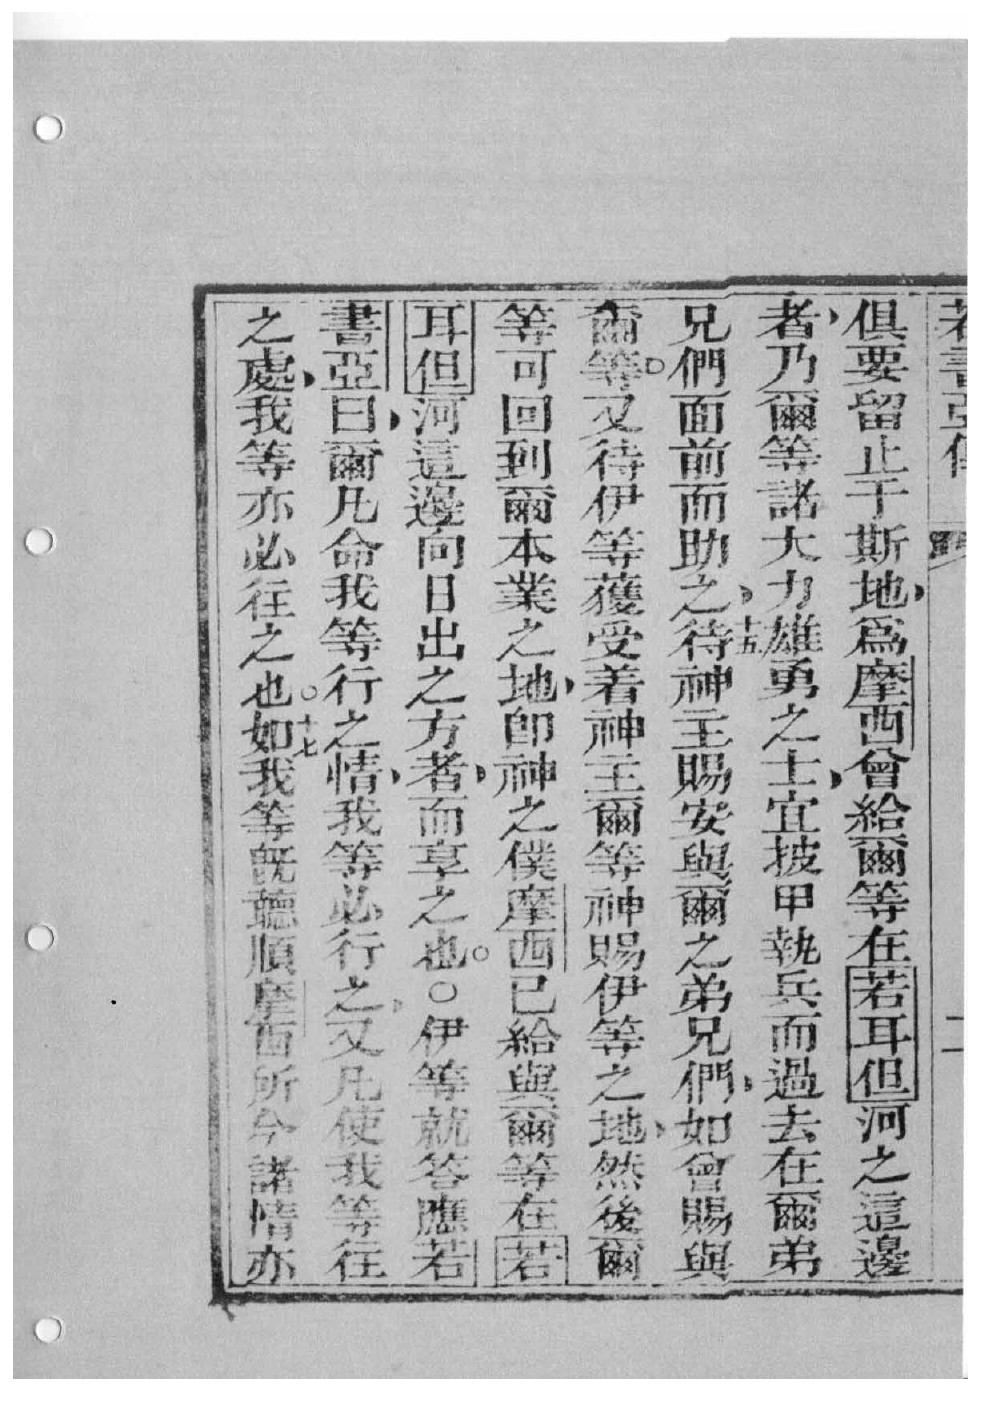 若書亞傳 二
俱要留止于斯地、爲摩西曾給爾等在若耳但河之這邊
者、乃爾等諸大力雄勇之士、宜披甲執兵而過去在爾弟
兄們面前而助之、十五待神主賜安與爾之弟兄們、如曾賜與
爾等。又待伊等獲受着神主爾等神賜伊等之地、然後爾
等可回到爾本業之地、卽神之僕摩西已給與爾等在若
耳但河這邊向日出之方者、而享之也。○伊等就答應若
書亞曰、爾凡命我等行之情、我等必行之、又凡使我等往
之處、我等亦必往之也。十七如我等旣聽順摩西所令諸情亦